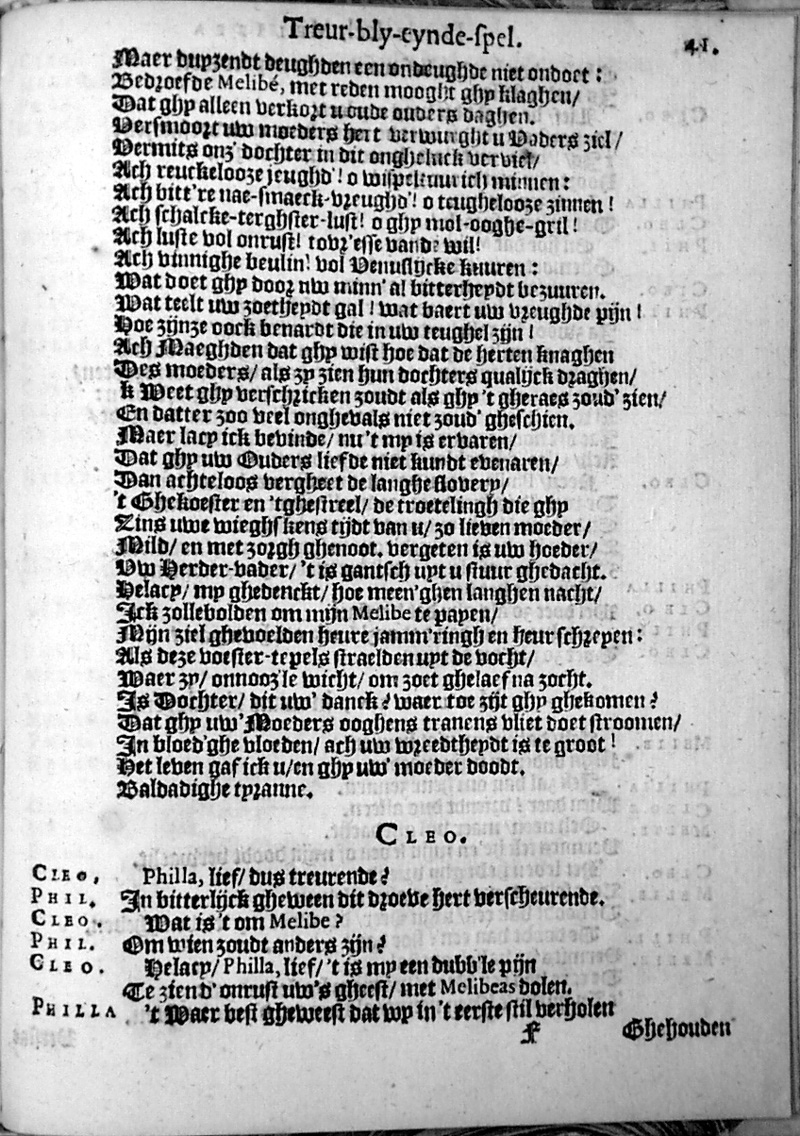 Treur-bly-eynde-spel. 41.
Maer duyzendt deughden een ondeughde niet ondoet:
Bedroefde Melibé, met reden mooght ghy klaghen/
Dat ghy alleen verkort u oude ouders daghen.
Versmoort uw moeders hert verwurght u Vaders ziel/
Vermits onz' dochter in dit ongheluck verviel/
Ach reuckelooze jeughd'! o wispeltuurich minnen:
Ach bitt're nae-smaeck-vreughd'! o teughelooze zinnen!
Ach schalcke-terghster-lust! o ghy mol-ooghe-gril!
Ach luste vol onrust! tovr'esse vande wil!
Ach vinnighe beulin! vol Venuslijcke kuuren:
Wat doet ghy door uw minn' al bitterheydt bezuuren.
Wat teelt uw zoetheydt gal! wat baert uw vreughde pijn!
Hoe zijnze oock benardt die in uw teughel zijn!
Ach Maeghden dat ghy wist hoe dat de herten knaghen
Des moeders/ als zy zien hun dochters qualijck draghen/
k Weet ghy verschricken zoudt als ghy 't gheraes zoud' zien/
En datter zoo veel onghevals niet zoud' gheschien.
Maer lacy ick bevinde/ nu 't my is ervaren/
Dat ghy uw Ouders liefde niet kundt evenaren/
Dan achteloos vergheet de langhe slovery/
't Ghekoester en 'tghestreel/ de troetelingh die ghy
Zins uwe wieghskens tijdt van u/ zo lieven moeder/
Mild/ en met zorgh ghenoot. vergeten is uw hoeder/
Uw Herder-vader/ 't is gantsch uyt u stuur ghedacht.
Helacy/ my ghedenckt/ hoe meen'ghen langhen nacht/
Ick zollebolden om mijn Melibe te payen/
Mijn ziel ghevoelden heure jamm'ringh en heur schreyen:
Als deze voester-tepels straelden uyt de vocht/
Waer zy/ onnooz'le wicht/ om zoet ghelaef na zocht.
Is Dochter/ dit uw' danck? waer toe zijt ghy ghekomen?
Dat ghy uw' Moeders ooghens tranens vliet doet stroomen/
In bloed'ghe vloeden/ ach uw wreedtheydt is te groot!
Het leven gaf ick u/ en ghy uw' moeder doodt.
Baldadighe tyranne.
CLEO.
CLEO, Philla, lief/ dus treurende?
PHIL. In bitterlijck gheween dit droeve hert verscheurende.
CLEO. Wat is 't om Melibe?
PHIL. Om wien zoudt anders zijn?
CLEO. Helacy/ Philla, lief/ 't is my een dubb'le pijn
Te zien d' onrust uw's gheest/ met Melibeas dolen.
PHILLA 't Waer best gheweest dat wy in 't eerste stil verholen
F Ghehouden